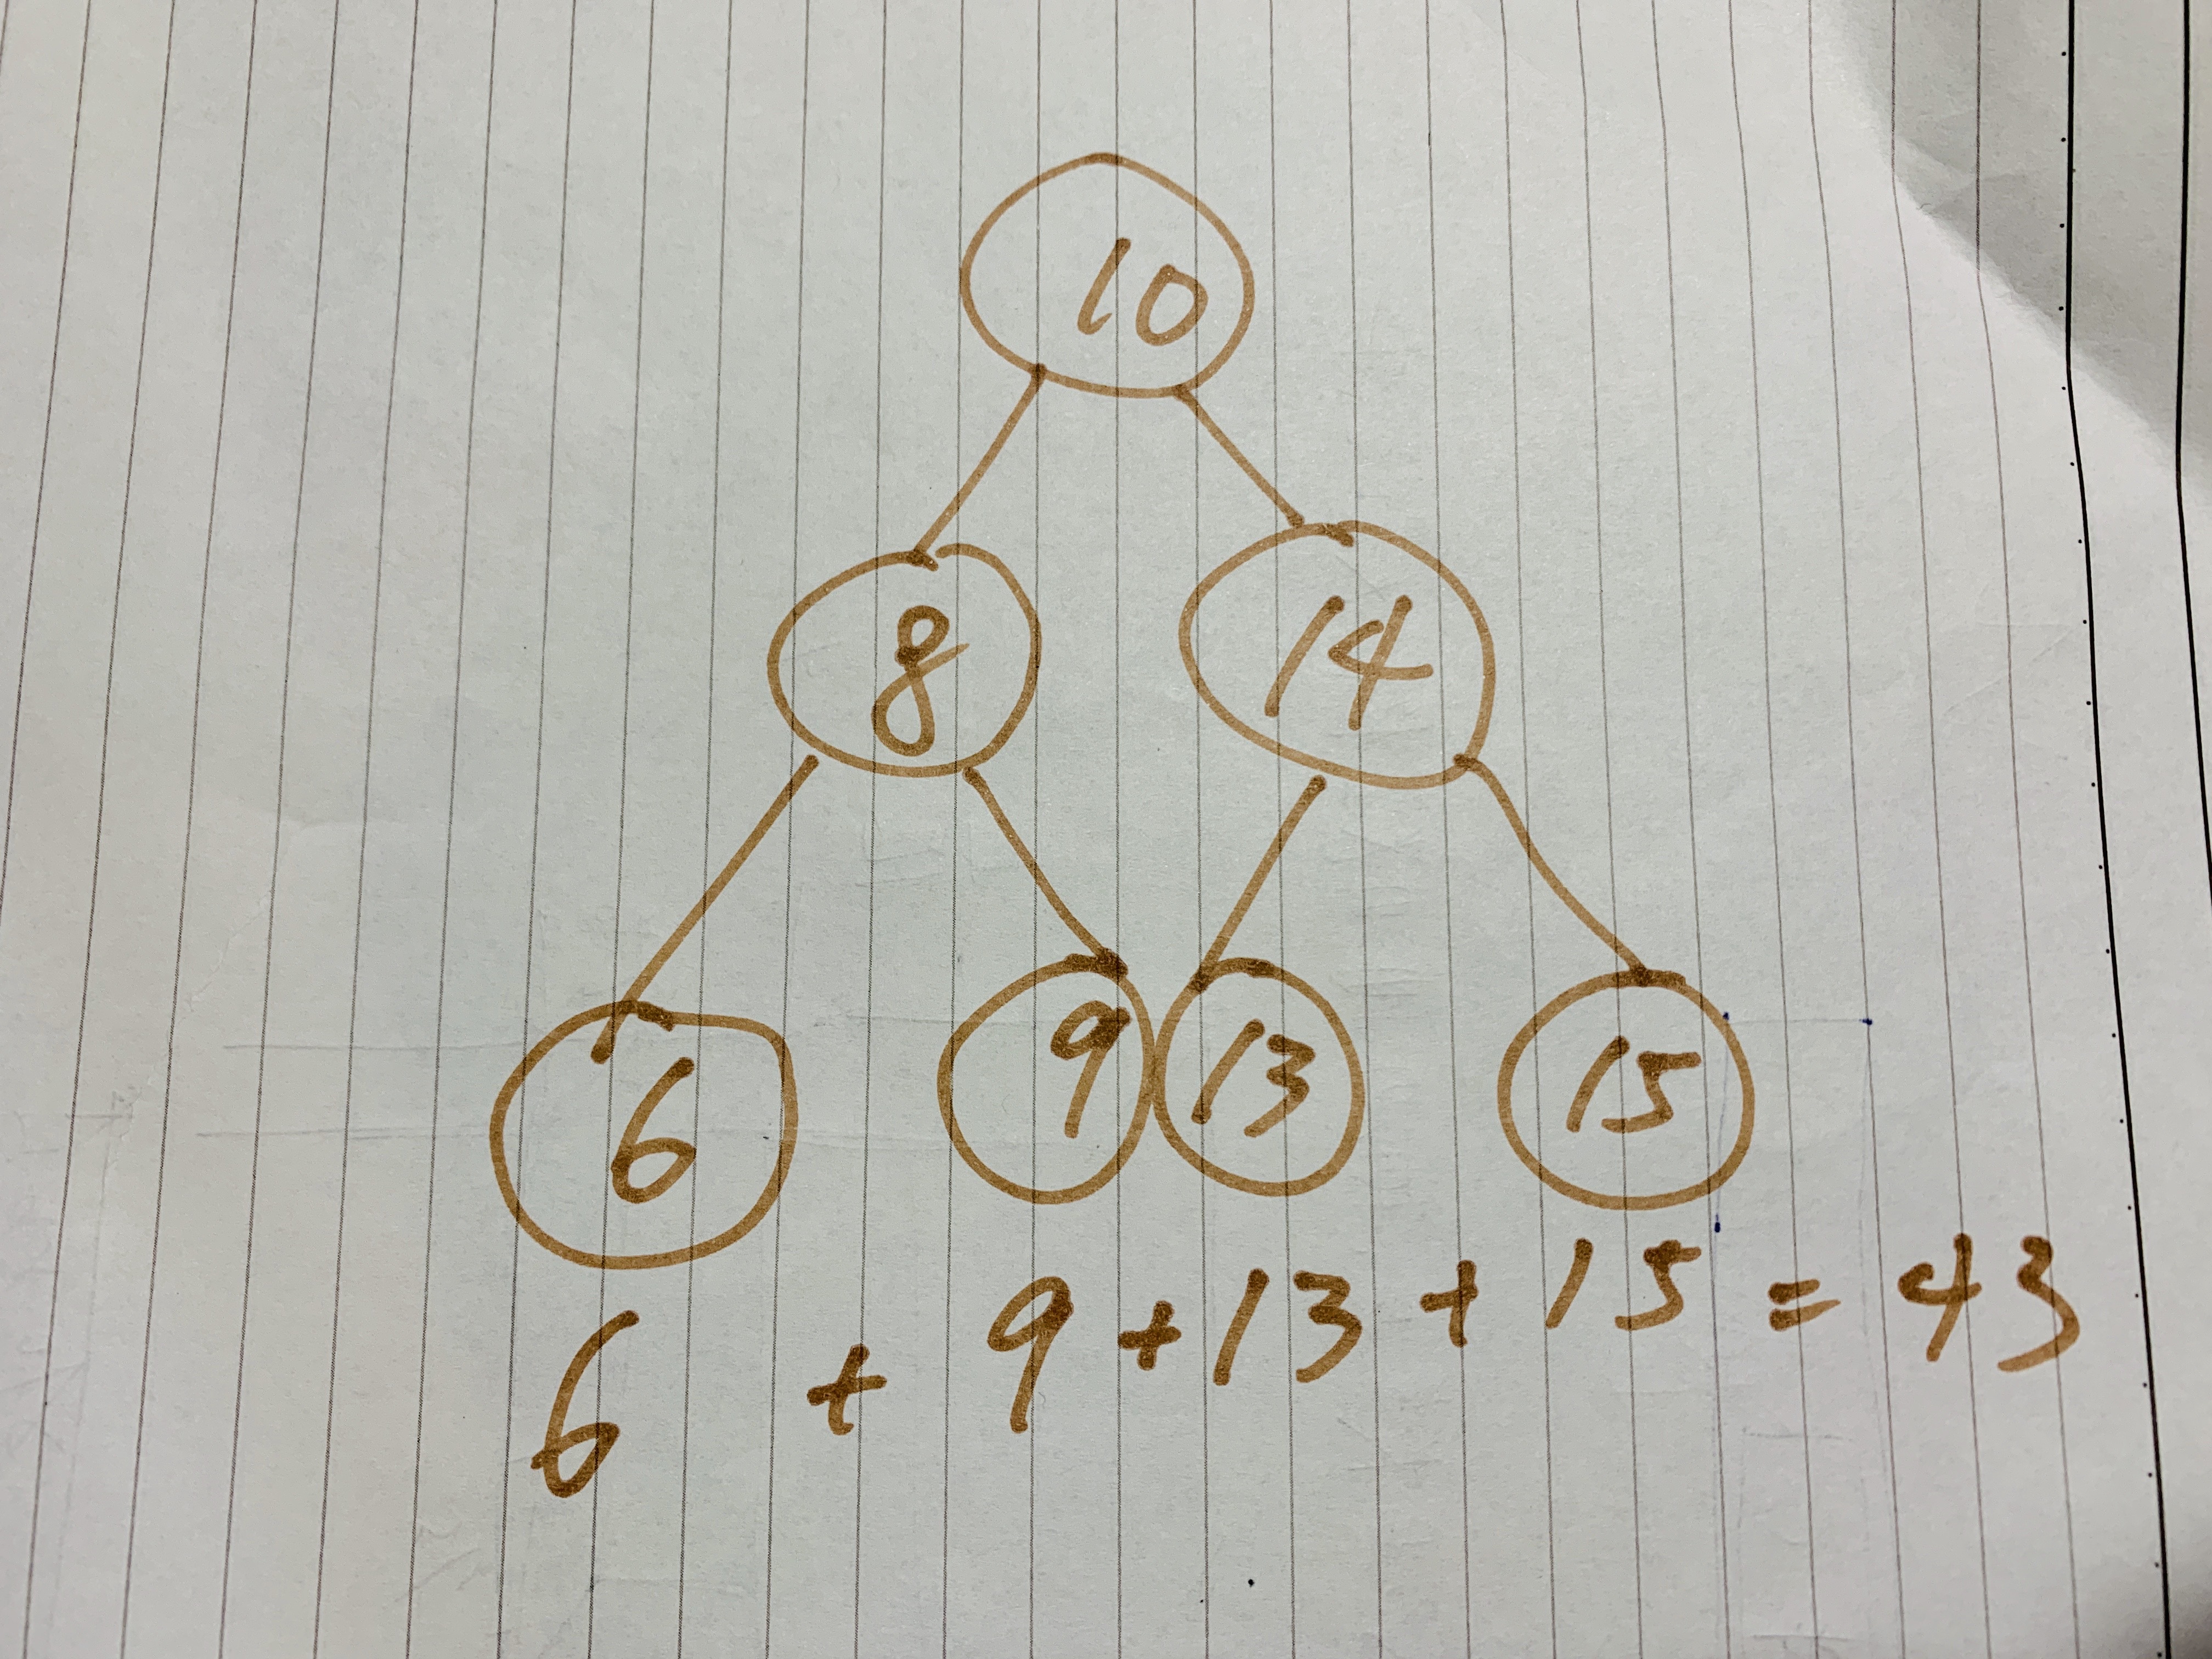 10
8 14
6 9 13 15
6 + 9 + 13 + 15 = 43